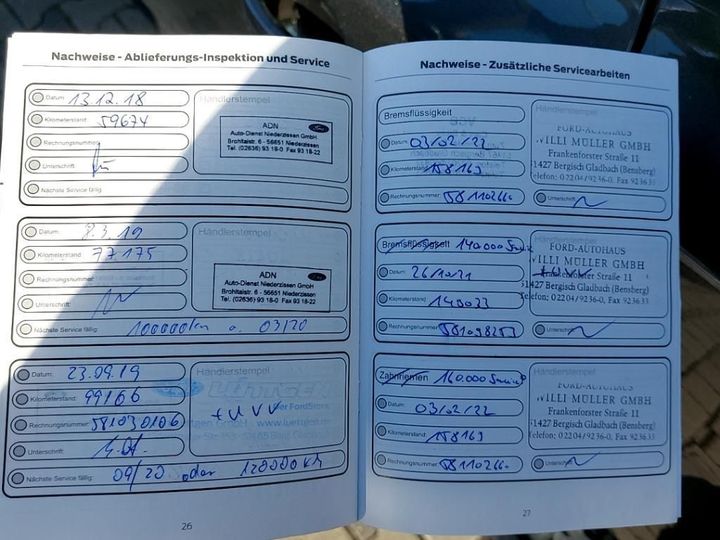 Nachweise - Ablieferungs-Inspektion und Service
Datum: 13.12.18
Kilometerstand: 59674
Rechnungsnummer:
Unterschrift:
Nächste Service fällig:
Händlerstempel
ADN
Auto-Dienst Niederzissen GmbH
Brohltalstr. 6 - 56651 Niederzissen
Tel. (02636) 93 18-0 Fax 93 18-22
Datum: 8.3.19
Kilometerstand: 77175
Rechnungsnummer:
Unterschrift:
Nächste Service fällig: 100000km o. 03/20
Händlerstempel
ADN
Auto-Dienst Niederzissen GmbH
Brohltalstr. 6 - 56651 Niederzissen
Tel. (02636) 93 18-0 Fax 93 18-22
Datum: 23.09.19
Kilometerstand: 99166
Rechnungsnummer:
Unterschrift:
Nächste Service fällig: 09/20 oder 120000 km
Händlerstempel
+UVV
26
Nachweise - Zusätzliche Servicearbeiten
Bremsflüssigkeit
Datum: 03/02/22
Kilometerstand: 158169
Rechnungsnummer:
Händlerstempel
FORD-AUTOHAUS
WILLI MÜLLER GMBH
Frankenforster Straße 11
51427 Bergisch Gladbach (Bensberg)
Telefon: 02204/9236-0, Fax 923633
Unterschrift:
Bremsflüssigkeit 140.000 Service
Datum: 26/10/21
Kilometerstand:
Rechnungsnummer:
Händlerstempel
FORD-AUTOHAUS
WILLI MÜLLER GMBH
Straße 11
51427 Bergisch Gladbach (Bensberg)
Telefon: 02204/9236-0, Fax 923633
Unterschrift:
Zahnriemen 160.000 Service
Datum: 03/02/22
Kilometerstand: 158169
Rechnungsnummer:
Händlerstempel
FORD-AUTOHAUS
WILLI MÜLLER GMBH
Frankenforster Straße 11
51427 Bergisch Gladbach (Bensberg)
Telefon: 02204/9236-0, Fax 923633
Unterschrift:
27